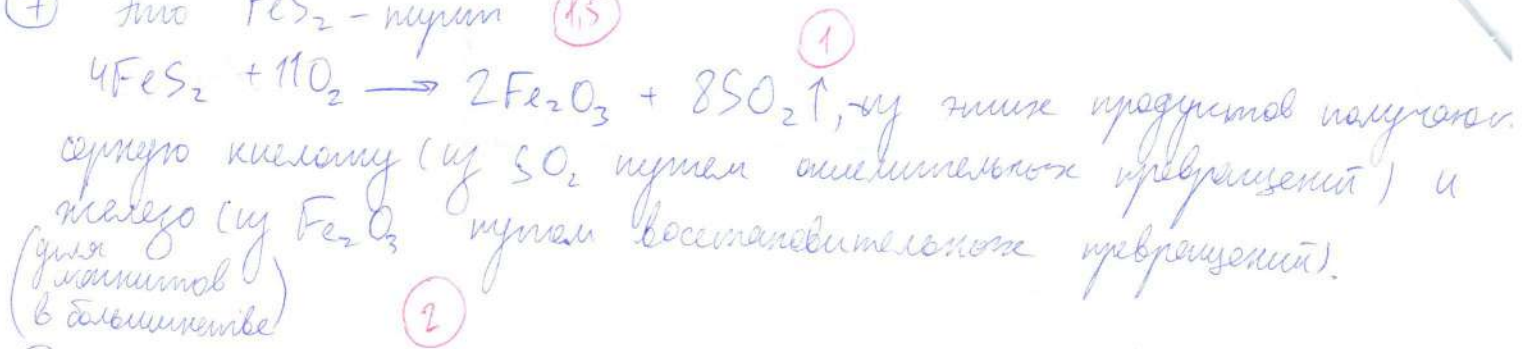 7 это FeS₂ - пирит 1,5
1
4FeS₂ + 11O₂ → 2Fe₂O₃ + 8SO₂↑, из этих продуктов получают
серную кислоту (из SO₂ путем окислительных превращений) и
железо (из Fe₂O₃ путем восстановительных превращений).
(для
магнитов
в большинстве)
2